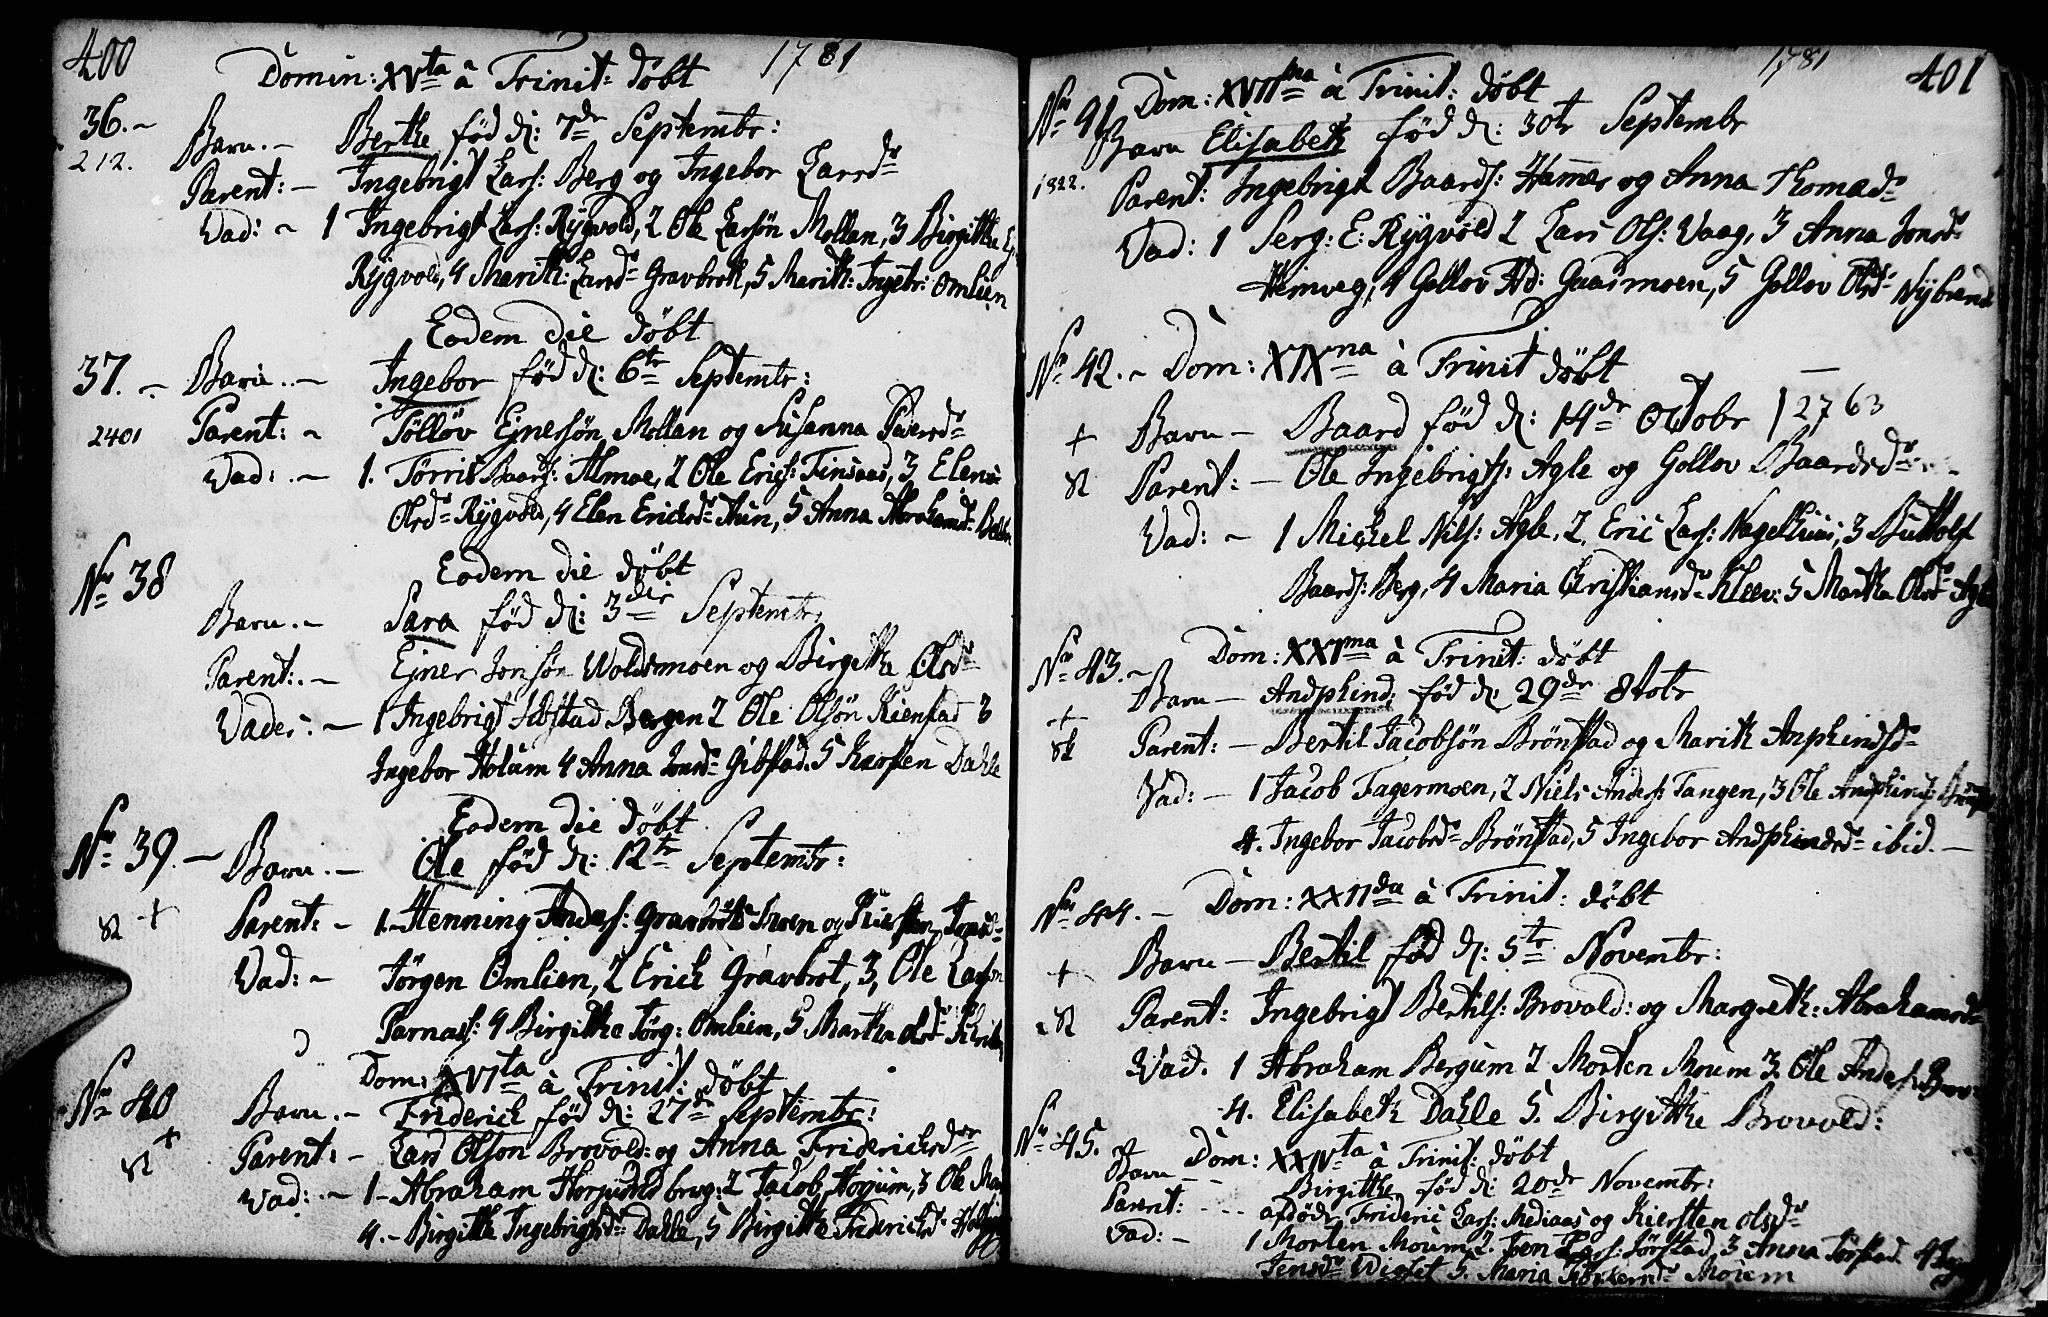 400
1781
Domin: XVta â Trinit: døbt
36.-
212.
Barn.- Berthe fød d: 7de Septembr:
Parent:- Ingebrigt Lars: Berg og Ingebor Larsd
Vad:- 1 Ingebrigt Lars: Rygvold, 2 Ole Larsøn Mollan, 3 Birgitha
Rygvold, 4 Marith: Larsd Gravbrok, 5 Marith: Ingebr: Omlien
Eodem die døbt
37.-
2401
Barn.- Ingebor fød d: 6te Septembr:
Parent:- Tølløv Ejnersøn Mollan og Susanna
Vad:.- 1. Torris Baars: Almoe, 2 Ole Erics: Finsaas, 3 Elen
Olsd Rygvold, 4 Elen Ericksd Aun, 5 Anna Abrahamsd
Eodem die døbt
No 38
Barn.- Sara fød d: 3die Septembr:
Parent:.- Ejner Jonsøn Woldsmoen og Birgitha Olsd
Vader:- 1 Ingebrigt Ibstad Bergen 2 Ole Olsøn Kienstad 3
Ingebor Holum 4 Anna Jonsd Gibstad. 5 Karsten Dahle
Eodem die døbt
No 39.-
Barn.- Ole fød d: 12te Septembr:
Parent:- 1.-Henning Anders: Gravbrok Moen og Kiersten Jonsd
Vad:- Jørgen Omlien, 2 Erich Gravbrot, 3, Ole Larson
Parnas: 4 Birgitha Jørg: Omlien, 5 Martha Olsd
Dom: XVIta â Trinit: døbt
No 40
Barn.- Friderich fød d: 27de Septembr:
Parent:- Lars Olson Brovold: og Anna Friderichsdr
Vad:.- 1- Abraham brug: 2 Jacob 3 Ole
4.- Birgitte Ingebrigtsd Dahle, 5 Birgitte Friderichsd
1781
401
Dom: XVIIma â Trinit: døbt
No 41
1322.
Barn Elisabeth fød d: 30te Septembr
Parent: Ingebrigt Baards: Hammer og Anna Thomasd
Vad: 1 Serg: E: Rygvold 2 Lars Ols: Vaag, 3 Anna Jonsd
Heimveg, 4 Gollov Gaasmoen, 5 Gollov Olsd
No 42.- Dom: XIXna â Trinit døbt
Barn - Baard fød d: 14de Octobr 12763
Parent:- Ole Ingebrigts: Agle og Gollov Baardsd
Vad:- 1 Michel Nils: Agle, 2, Eric Lars: Nagelhuus, 3 Buttolf
Baards: Berg, 4 Maria Christiansd Kleev: 5 Martha Olsd Agle
Dom: XXIma â Trinit: døbt
No 43.-
Barn - Andphind; fød d. 29de 8tobr
Parent:- Bertil Jacobsøn Brønstad og Marith Anphindsd
Vad:- 1 Jacob Fagermoen, 2 Niels Anders: Tangen, 3 Ole Andphind:
4. Ingebor Jacobsd Brønstad, 5 Ingebor Andphindsd ibid.-
No 44.- Dom: XXIIda â Trinit: døbt
Barn - Bertil fød d: 5te Novembr:
Parent: Ingebrigt Bertils: Brovold: og Margreth: Abrahamsd
Vad. 1 Abraham Bergum 2 Morten Moum 3. Ole Anders:
4. Elisabeth Dahle 5. Birgitthe Brovold:
No 45. Dom: XXIVta â Trinit: døbt
Barn - - Birgitthe fød d: 20de Novembr:
Parent: - - - afdøde Frideric Lars: Mediaas og Kiersten Olsd
Vad:- 1 Morten Moum, 2. Lars: Jørstad, 3 Anna Jørstad 4
Jensd 5. Maria Moiem